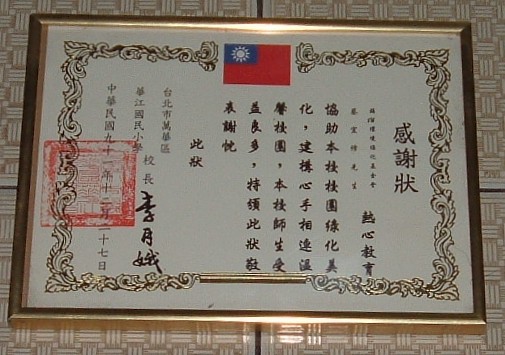 感謝狀
蔡宜樺先生
熱心教育
協助本校校園綠化美
化，建構心手相連溫
馨校園，本校師生受
益良多，特頒此狀敬
表謝忱
此狀
台北市萬華區
華江國民小學校長李月娥
中華民國九十一年十二月二十七日